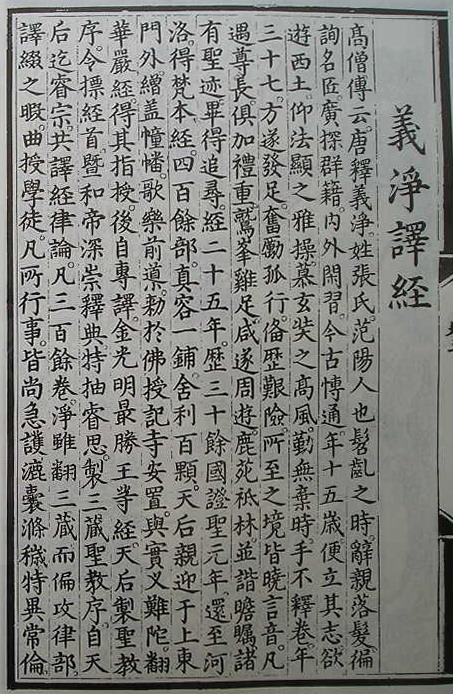 義淨譯經
高僧傳云。唐釋義淨。姓張氏。范陽人也。髫齓之時。辭親落髮。徧
詢名匠。廣探群籍。内外閑習。今古愽通。年十五歳。便立其志。欲
遊西土。仰法顯之雅操。慕玄奘之高風。勤無棄時。手不釋卷。年
三十七。方遂發足。奮勵孤行。俻歴艱險。所至之境。皆曉言音。凡
遇尊長。俱加禮重。鷲峯雞足。咸遂周遊。鹿苑祇林。並諧瞻矚。諸
有聖迹。畢得追尋。經二十五年。歴三十餘國。證聖元年。還至河
洛。得梵本經。四百餘部。真容一鋪。舍利百顆。天后親迎于上東
門外。繒盖幢幡。歌樂前導。勑於佛授記寺安置。與實义難陀。翻
華嚴經。得其指授。後自專譯。金光明最勝王等經。天后製聖教
序。令標經首。曁和帝深崇釋典。特抽睿思。製三藏聖教序。自天
后迄睿宗。共譯經律論。凡三百餘卷。淨雖翻三藏。而偏攻律部。
譯綴之暇。曲授學徒。凡所行事。皆尚急護。漉囊滌穢。特異常倫。